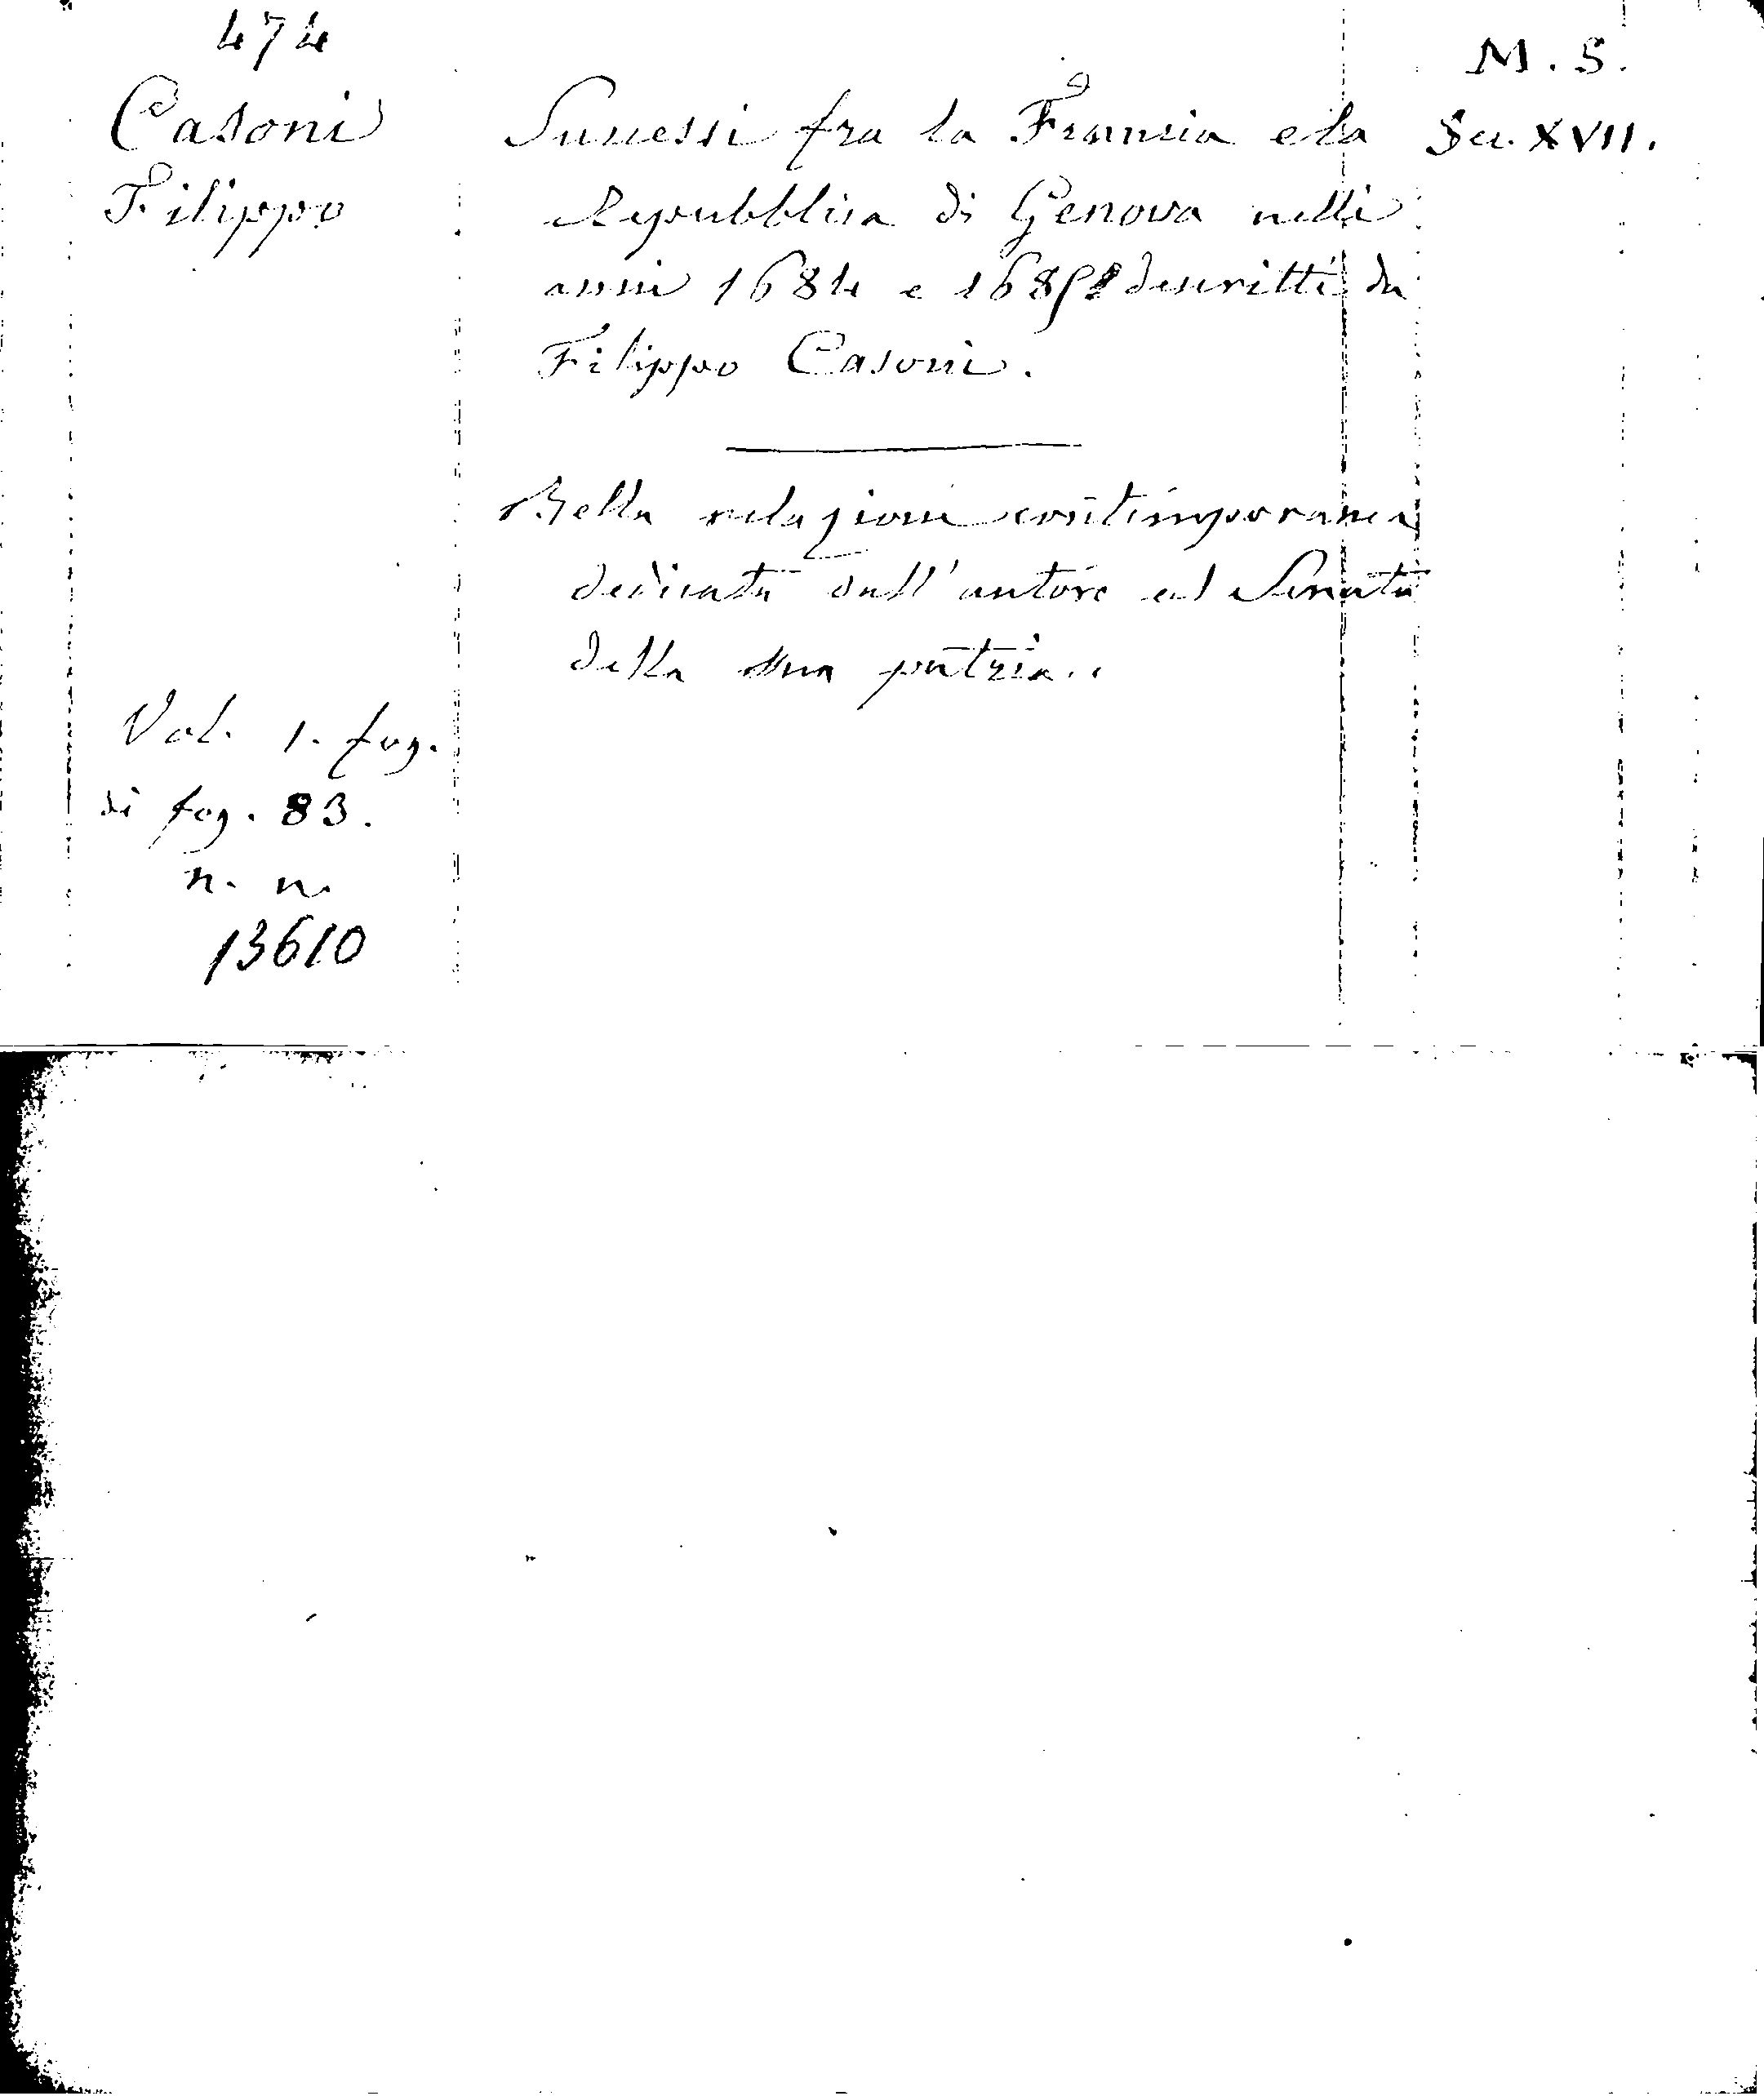 474
M. S.
Casoni
Filippo
Successi fra la Francia e la
Repubblica di Genova nelli
anni 1684 e 1685 descritti da
Filippo Casoni.
Sec. XVII.
Bella relazione contemporanea
dedicata dall'autore al Senato
della sua patria..
Vol. 1. fog.
di fog. 83.
n. n.
13610